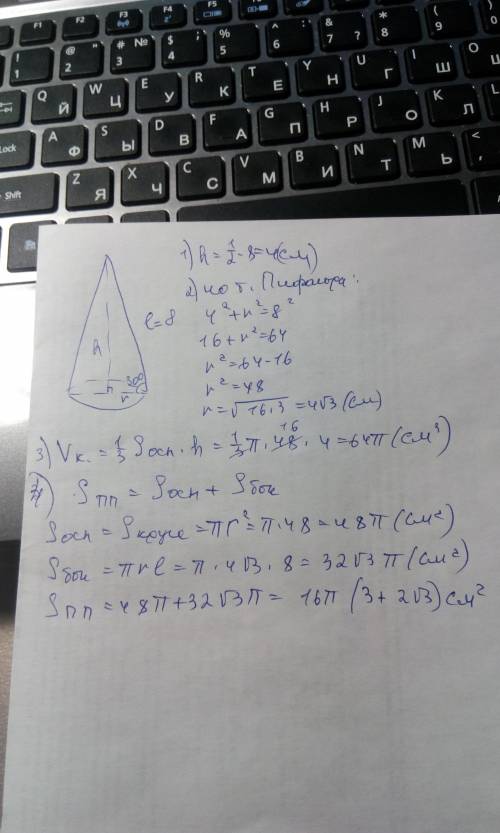 F1 F2 F3 F4 F5 F6 F7 F8 F9
! 1 @ " 2 # № 3 $ ; 4 % 5 ^ : 6 & ? 7 * 8 ( 9
Q Й W Ц E У R К T Е Y Н U Г I Ш O
Lock A Ф S Ы D В F А G П H Р J О K Л L
Shift Z Я X Ч C С V М B И N Т M Ь <
1) h = 1/2 · 8 = 4 (см)
2) по т. Пифагора:
4² + r² = 8²
16 + r² = 64
r² = 64 - 16
r² = 48
r = √16·3 = 4√3 (см)
l = 8
h
30°
r
3) Vк. = 1/3 Sосн · h = 1/3 π · 48 · 4 = 64π (см³)
16
4) Sпп = Sосн + Sбок
Sосн = Sкруга = πr² = π · 48 = 48π (см²)
Sбок = πrl = π · 4√3 · 8 = 32√3 π (см²)
Sпп = 48π + 32√3π = 16π (3 + 2√3) см²